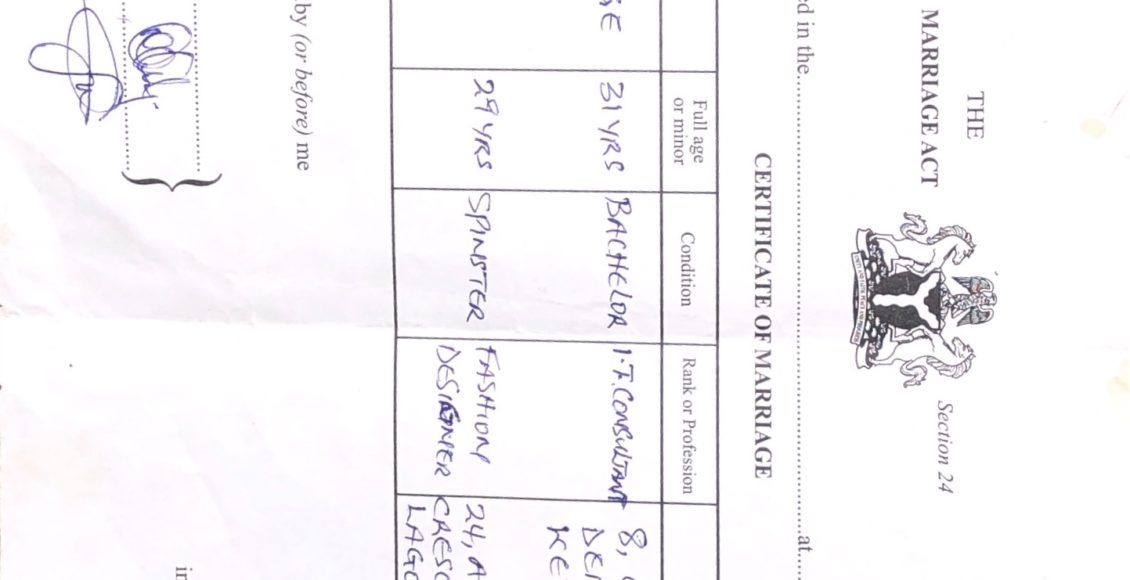 THE
MARRIAGE ACT
Section 24
CERTIFICATE OF MARRIAGE
ed in the
at
Full age
or minor
Condition
Rank or Profession
31 YRS
BACHELOR
I.T. CONSULTANT
8,
29 YRS
SPINSTER
FASHION
DESIGNER
24, A
CRESC
LAGO
by (or before) me
in